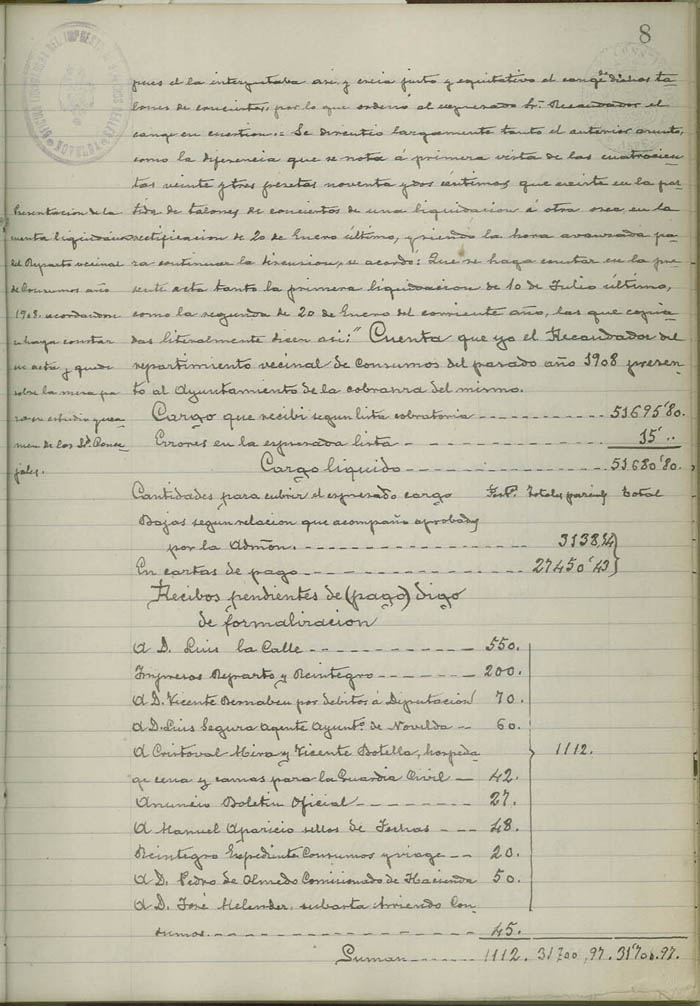 8
pues el la interpretaba asi, y creia justo y equitativo el cange de dichos ta-
lones de conciertos, por lo que ordenó al expresado Sr. Recaudador el
cange en cuestion.= Se discutio largamente tanto el anterior asunto,
como la diferencia que se nota á primera vista de las cuatrocien-
tas veinte y tres pesetas noventa y dos céntimos que existe en la par-
tida de talones de conciertos de una liquidacion á otra osea en la
rectificacion de 20 de Enero último, y siendo la hora avanzada pa-
ra continuar la discusion, se acordo: Que se haga constar en la pre-
sente acta tanto la primera liquidacion de 10 de Julio último,
como la segunda de 20 de Enero del corriente año, las que copia-
das literalmente dicen asi: "Cuenta que yo el Recaudador del
repartimiento vecinal de consumos del pasado año 1908 presen-
to al Ayuntamiento de la cobranza del mismo.
Presentacion de la
cuenta liquidacion
del Reparto vecinal
de Consumos año
1908 acordandose
se haya constar
en acta y quede
sobre la mesa pa-
ra su estudio y exa-
men de los Sres. Conce-
jales.
Cargo que recibi segun lista cobratoria 51695'80.
Errores en la expresada lista 15'..
Cargo liquido 51680'80.
Cantidades para cubrir el expresado cargo Ptas. totales parciales total
Bajas segun relacion que acompaño aprobadas
por la Admon. 3138,54
En cartas de pago 27450'43
Recibos pendientes de (pago) digo
de formalizacion
A D. Luis la Calle 550.
Impresos Reparto y Reintegro 200.
A D. Vicente Bernabeu por debitos á Diputacion 70.
A D. Luis Segura Agente Ayunto. de Novelda 60.
A Cristoval Mira y Vicente Botella, hospeda- 1112.
ge cena y camas para la Guardia Civil 42.
Anuncio Boletin Oficial 27.
A Manuel Aparicio sellos de fechas 48.
Reintegro Expediente Consumos y viage 20.
A D. Pedro de Olmedo Comisionado de Hacienda 50.
A D. José Melendez subasta Arriendo Con-
sumos 45.
Suman 1112. 31700,97. 31700.97.